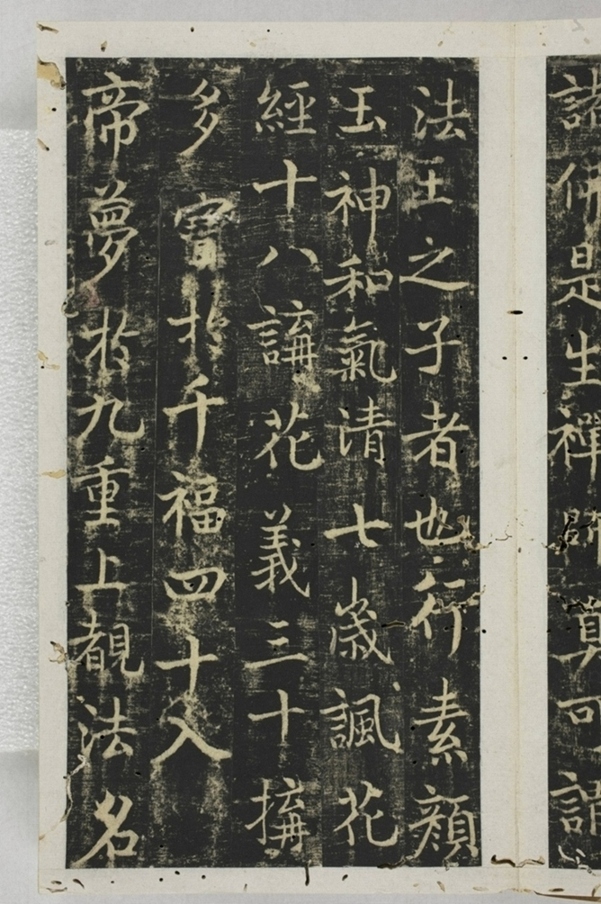 諸佛是生禪師真可謂
法王之子者也行素顏
玉神和氣清七歲諷花
經十八講花義三十搆
多寶於千福四十入
帝夢於九重上覩法名